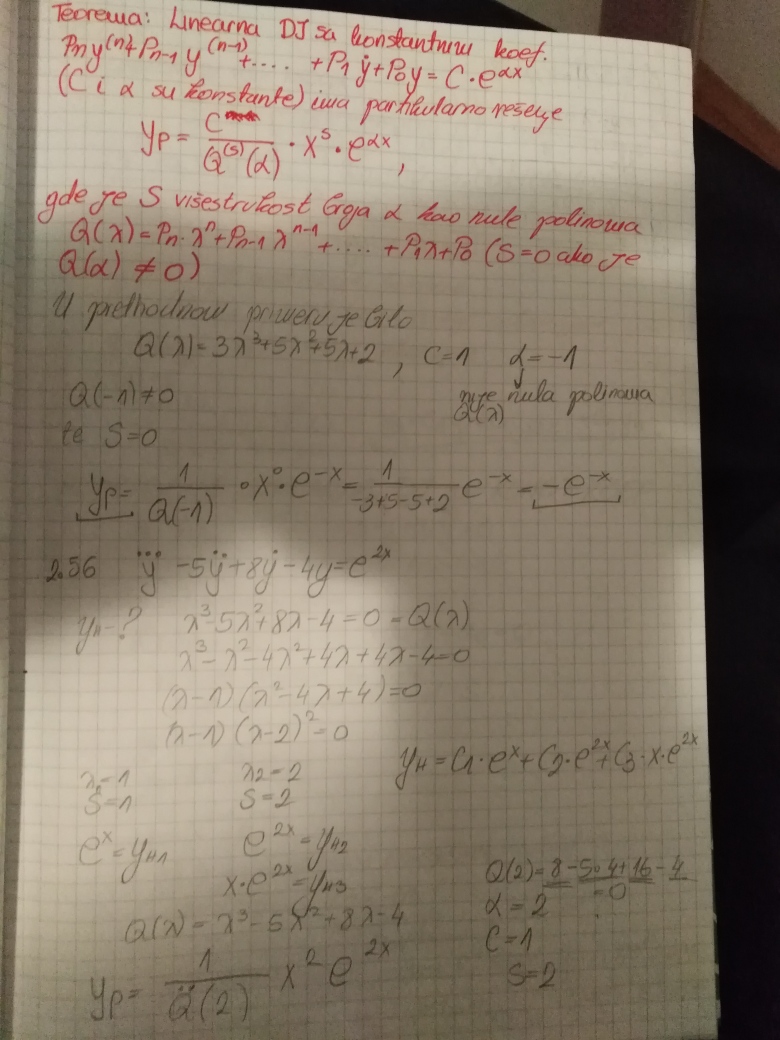 Teorema: Linearna DJ sa konstantnim koef.
Pn y⁽ⁿ⁾+Pn-1 y⁽ⁿ⁻¹⁾+.... +P1 ẏ+P0y = C·e^αx
(C i α su konstante) ima partikularno rešenje
yp = C / Q⁽ˢ⁾(α) · xˢ · e^αx,
gde je S višestrukost broja α kao nule polinoma
Q(λ)=Pn·λⁿ+Pn-1 λⁿ⁻¹+.... +P1λ+P0 (S=0 ako je
Q(α) ≠ 0)
U prethodnom primeru je bilo
Q(λ)=3λ³+5λ²+5λ+2, C=1 α=-1
nije nula polinoma
Q(λ)
Q(-1)≠0
te S=0
yp= 1 / Q(-1) · x⁰ · e⁻ˣ = 1 / -3+5-5+2 e⁻ˣ = -e⁻ˣ
2.56 y⃛ -5ÿ+8ẏ-4y=e²ˣ
yH-? λ³-5λ²+8λ-4=0=Q(λ)
λ³-λ²-4λ²+4λ+4λ-4=0
(λ-1)(λ²-4λ+4)=0
(λ-1)(λ-2)²=0
yH=C1·eˣ+C2·e²ˣ+C3·x·e²ˣ
λ1=1 λ2=2
S=1 S=2
eˣ=yH1 e²ˣ=yH2
x·e²ˣ=yH3
Q(2)=8-5·4+16-4
=0
α=2
C=1
S=2
Q(λ)=λ³-5λ²+8λ-4
yp= 1 / Q̈(2) x² e²ˣ